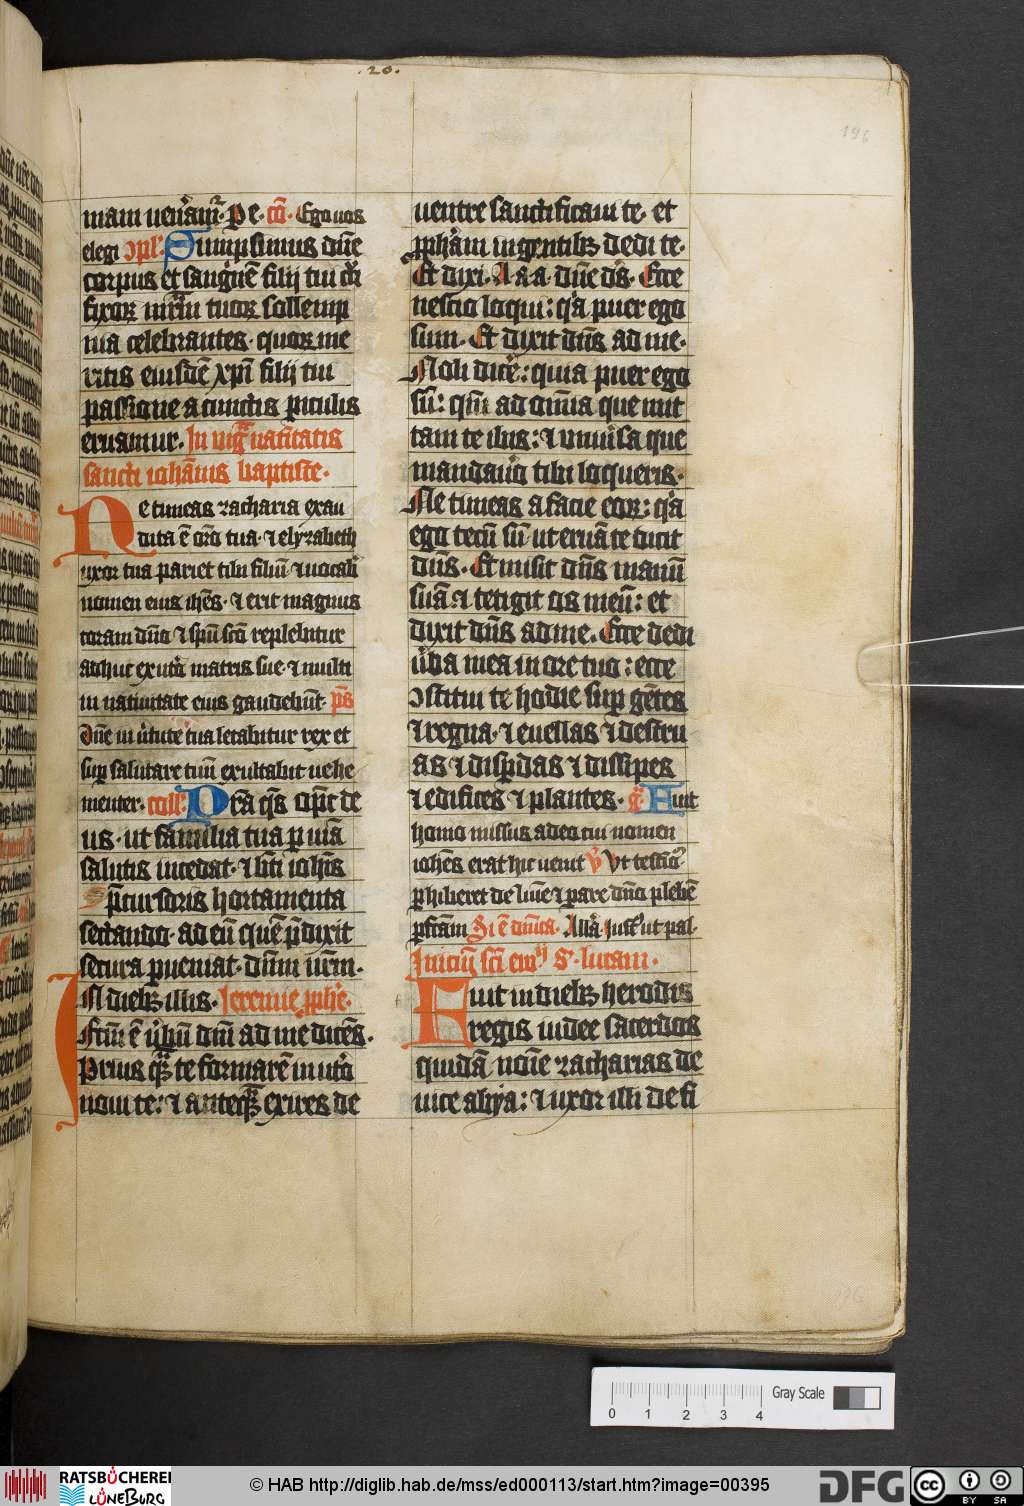 .20.
196
mam uen̄am̄᷑. Pe. co̅. Ego uos
elegi ꝯpl̅. Sumpsimus dn̅e
corpus et sangⁱne̅ filij tui cⁱci
fixoꝝ mr̅m̅ tuoꝝ sollemp
nia celebrantes. quoꝝ me
ritis eiusde̅ xpi̅ filij tui
passione a cunctis ꝑiculis
eruamur. In uigᵃ natitatis
sancti ioha̅nis baptiste.
Ne timeas zacharia exau
dita e̅ or̅o tua. ⁊ elyzabeth
uxor tua pariet tibi filiu̅ ⁊ uocab̅
nomen eius ih̅es. ⁊ erit magnus
coram dn̅o ⁊ sp̅u sc̅o replebitur
adhuc ex ut̅o matris sue. ⁊ multi
in natiuitate eius gaudebu̅t. ps̅
Dn̅e in u̅tute tua letabitur rex et
suꝑ salutare tuu̅ exultabit uehe
menter. coll̅. Pr̅a qs̅ op̅c de
us. ut familia tua ꝑ uia̅
salutis incedat. ⁊ bt̅i ioh̅is
p̅cursoris hortamenta
sectando. ad eu̅ que̅ p̅dixit
secura ꝑueniat. dn̅m nr̅m.
In dieb᷒ illis. Ieremie ꝓph̅e.
Fc̅m e̅ u̅bu̅ dn̅i ad me dice̅s.
Prius qᷓ te formare̅ in ut̅o
noui te: ⁊ anteqᷓ exires de
uentre sanctificaui te. et
ꝓph̅am in gentib᷒ dedi te.
Et dixi. A a a. dn̅e ds̅. Ecce
nescio loqui: qⁱa puer ego
sum. Et dixit dn̅s ad me.
Noli dice̅: quia puer ego
su̅: qm̅ ad omi̅a que mit
tam te ibis: ⁊ uniu̅sa que
mandau̅o tibi loqueris.
Ne timeas a facie eoꝝ: qⁱa
ego tecu̅ su̅ ut erua̅ te dicit
dn̅s. Et misit dn̅s manu̅
sua̅ ⁊ tetigit os meu̅: et
dixit dn̅s ad me. Ecce dedi
u̅ba mea in ore tuo: ecce
ꝯstitui te hodie suꝑ ge̅tes
⁊ regna. ⁊ euellas ⁊ destru
as ⁊ disꝑdas ⁊ dissipes
⁊ edifices ⁊ plantes. gr̅. Fuit
homo missus a deo cui nomen
ioh̅es erat hic uenit v̅ Ut testio̅ꝫ
ꝑhiberet de lumi̅e ⁊ parare dn̅o plebe̅
ꝑfc̅am Si e̅ dn̅ica. All̅a. Iust᷒ ut pal.
Iniciu̅ sc̅i ew̅ij S. lucam.
Fuit in dieb᷒ herodis
regis iudee sacerdos
quida̅ noi̅e zacharias de
uice abyia: ⁊ uxor illi de fi
196
0 1 2 3 4 Gray Scale
RATSBÜCHEREI LÜNEBURG
© HAB http://diglib.hab.de/mss/ed000113/start.htm?image=00395
DFG
cc BY SA